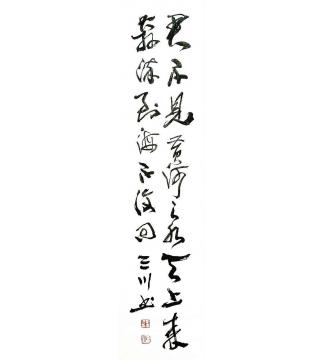 君不見黄河之水天上来
奔流到海不復回三川书